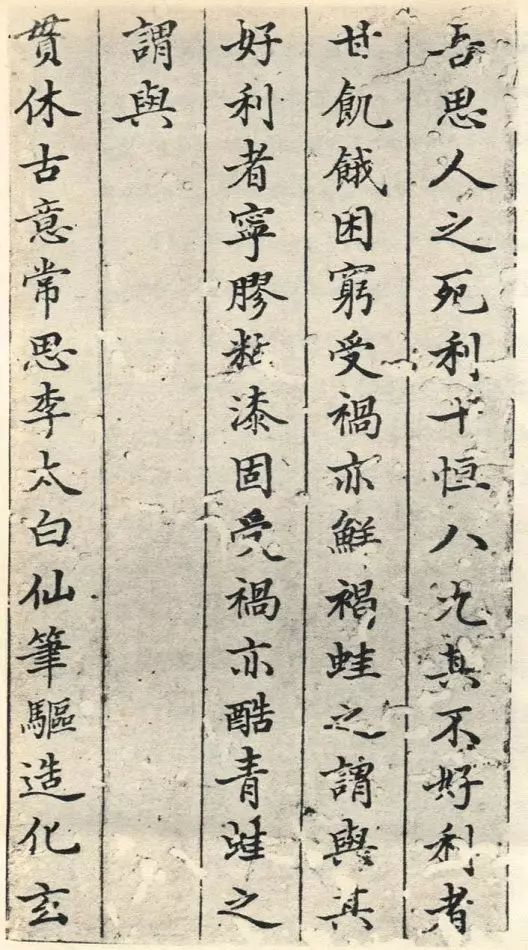 吾思人之死利十恒八九真不好利者
甘飢餓困窮受禍亦鮮褐蛙之謂與其
好利者寧膠黏漆固受禍亦酷青蛙之
謂與
貫休古意常思李太白仙筆驅造化玄